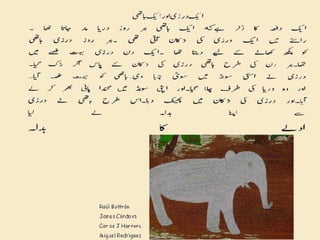 ایک درزی اور ایک ہاتھی
ایک دفعہ کا ذکر ہے کہ ایک ہاتھی ہر روز دریا پر جاتا تھا
راستے میں ایک درزی کی دکان آتی تھی۔ہر روز درزی ہاتھی
کو کچھ کھانے کے لیے دیتا تھا ۔ایک دن درزی بہت غصے میں
تھا۔ہر دن کی طرح ہاتھی درزی کی دکان کے پاس آکر رک گیا۔
درزی نے اسکی سونڈ میں سوئی چبھا دی۔ہاتھی کو بہت غصہ آیا۔
اور وہ دریا کی طرف چلا گیا۔اور اپنی سونڈ میں گندا پانی بھر کر لے
آیا۔اور درزی کی دکان میں پھینک دیا۔اس طرح ہاتھی نے درزی
سے اپنا بدلہ لے لیا
ادلے کا بدلہ۔
Raúl Buitrón
James Córdova
Carlos J Herrera
Miguel Rodríguez